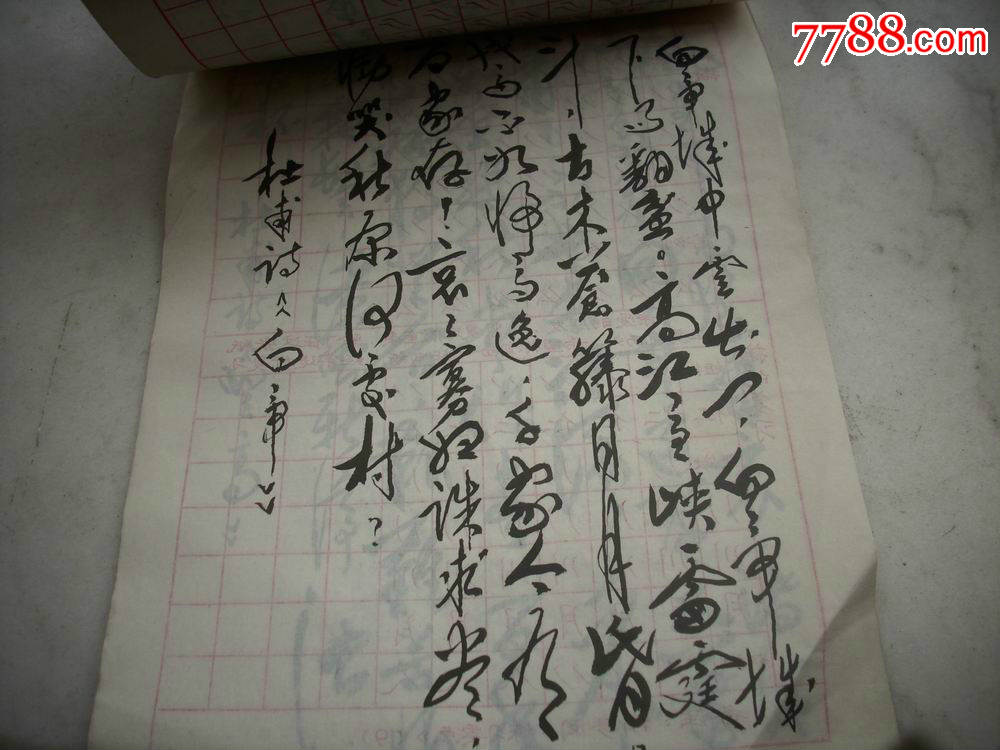 7788.com
白帝城中雲出门，白帝城
下雨翻盆。高江急峡雷霆
斗，古木蒼藤日月昏
戎马不如归马逸，千家今有
百家存！哀〻寡妇诛求尽，
恸哭秋原何处村？
杜甫诗《白帝》